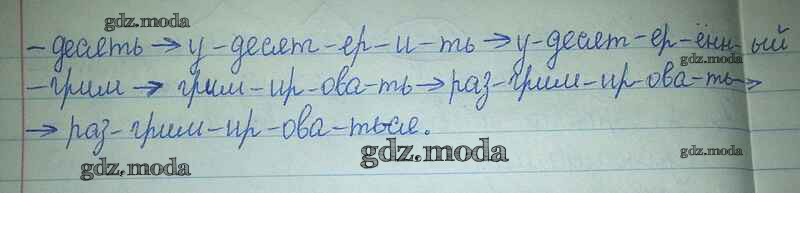 gdz.moda
gdz.moda
- десять → у-десят-ер-и-ть → у-десят-ер-ённ-ый
gdz.moda
- грим → грим-ир-ова-ть → раз-грим-ир-ова-ть →
→ раз-грим-ир-ова-ться.
gdz.moda
gdz.moda
gdz.moda